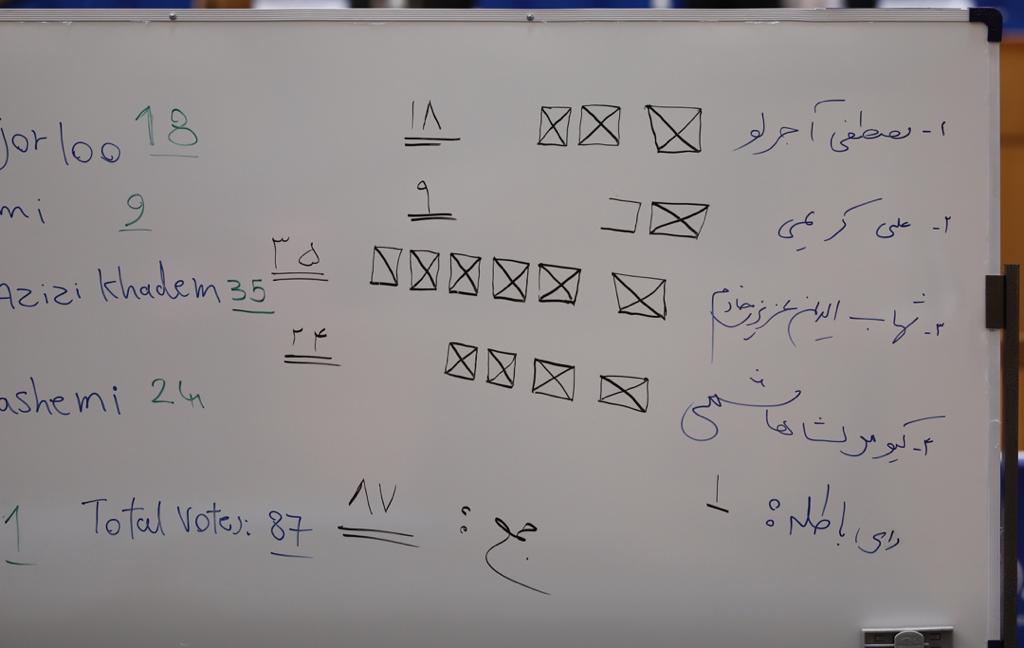 ۱- مصطفی آجرلو ۱۸ jorloo 18
۲- علی کریمی ۹ mi 9
۳- شهاب الدین عزیزی خادم ۳۵ Azizi Khadem 35
۴- کیومرث هاشمی ۲۴ ashemi 24
رای باطله: ۱
جمع: ۸۷ Total Votes: 87 1